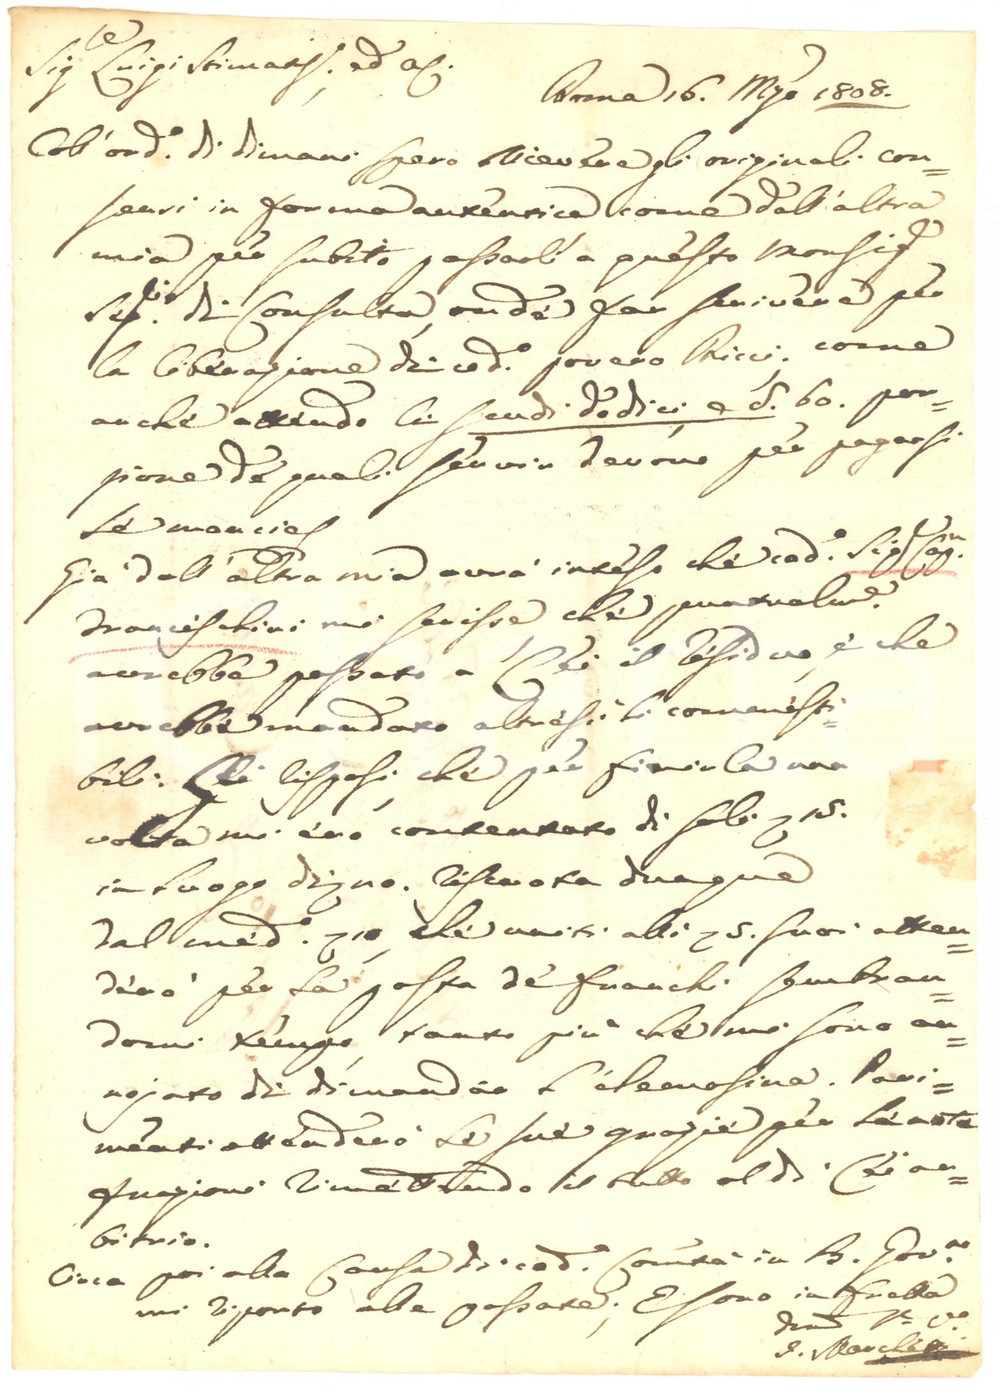 Sig.re Luigi Stimat.mo, ed Am.
Roma 16. Mzo 1808.
Coll'ord.o di dimani spero ricevere gli originali con=
sensi in forma autentica come dall'altra
mia per subito passarli a questo Monsig.r
Seg.rio di Consulta, onde far scrivere per
la liberazione di cod.o povero Ricci, come
anche attendo li scudi dodici e b. 60. por=
zione de quali servir devono per pagarsi
le mancie
Già dall'altra mia avrà inteso che cod.o Sig.r Cap.n
Franceschini mi scrisse che puntualm.e
avrebbe passato a Lei il residuo, e che
avrebbe mandato altresì li comesti=
bili. Gli risposi, che per finirla una
volta mi ero contentato di soli 15.
in luogo di Riscuota dunque
dal med.o 10, che uniti alli 5. suoi atten=
derò per la posta de Franchi sembran=
domi tempo, tanto più che mi sono an=
nojato di dimandar l'elemosina. Pari=
menti attenderò le sue grazie per le note
funzioni rimettendo il tutto al di Lei ar=
bitrio.
Circa poi alla Causa di cod.o Comtà in B. Gov.no
mi riporto alla passata; E sono in fretta
S. Marchetti